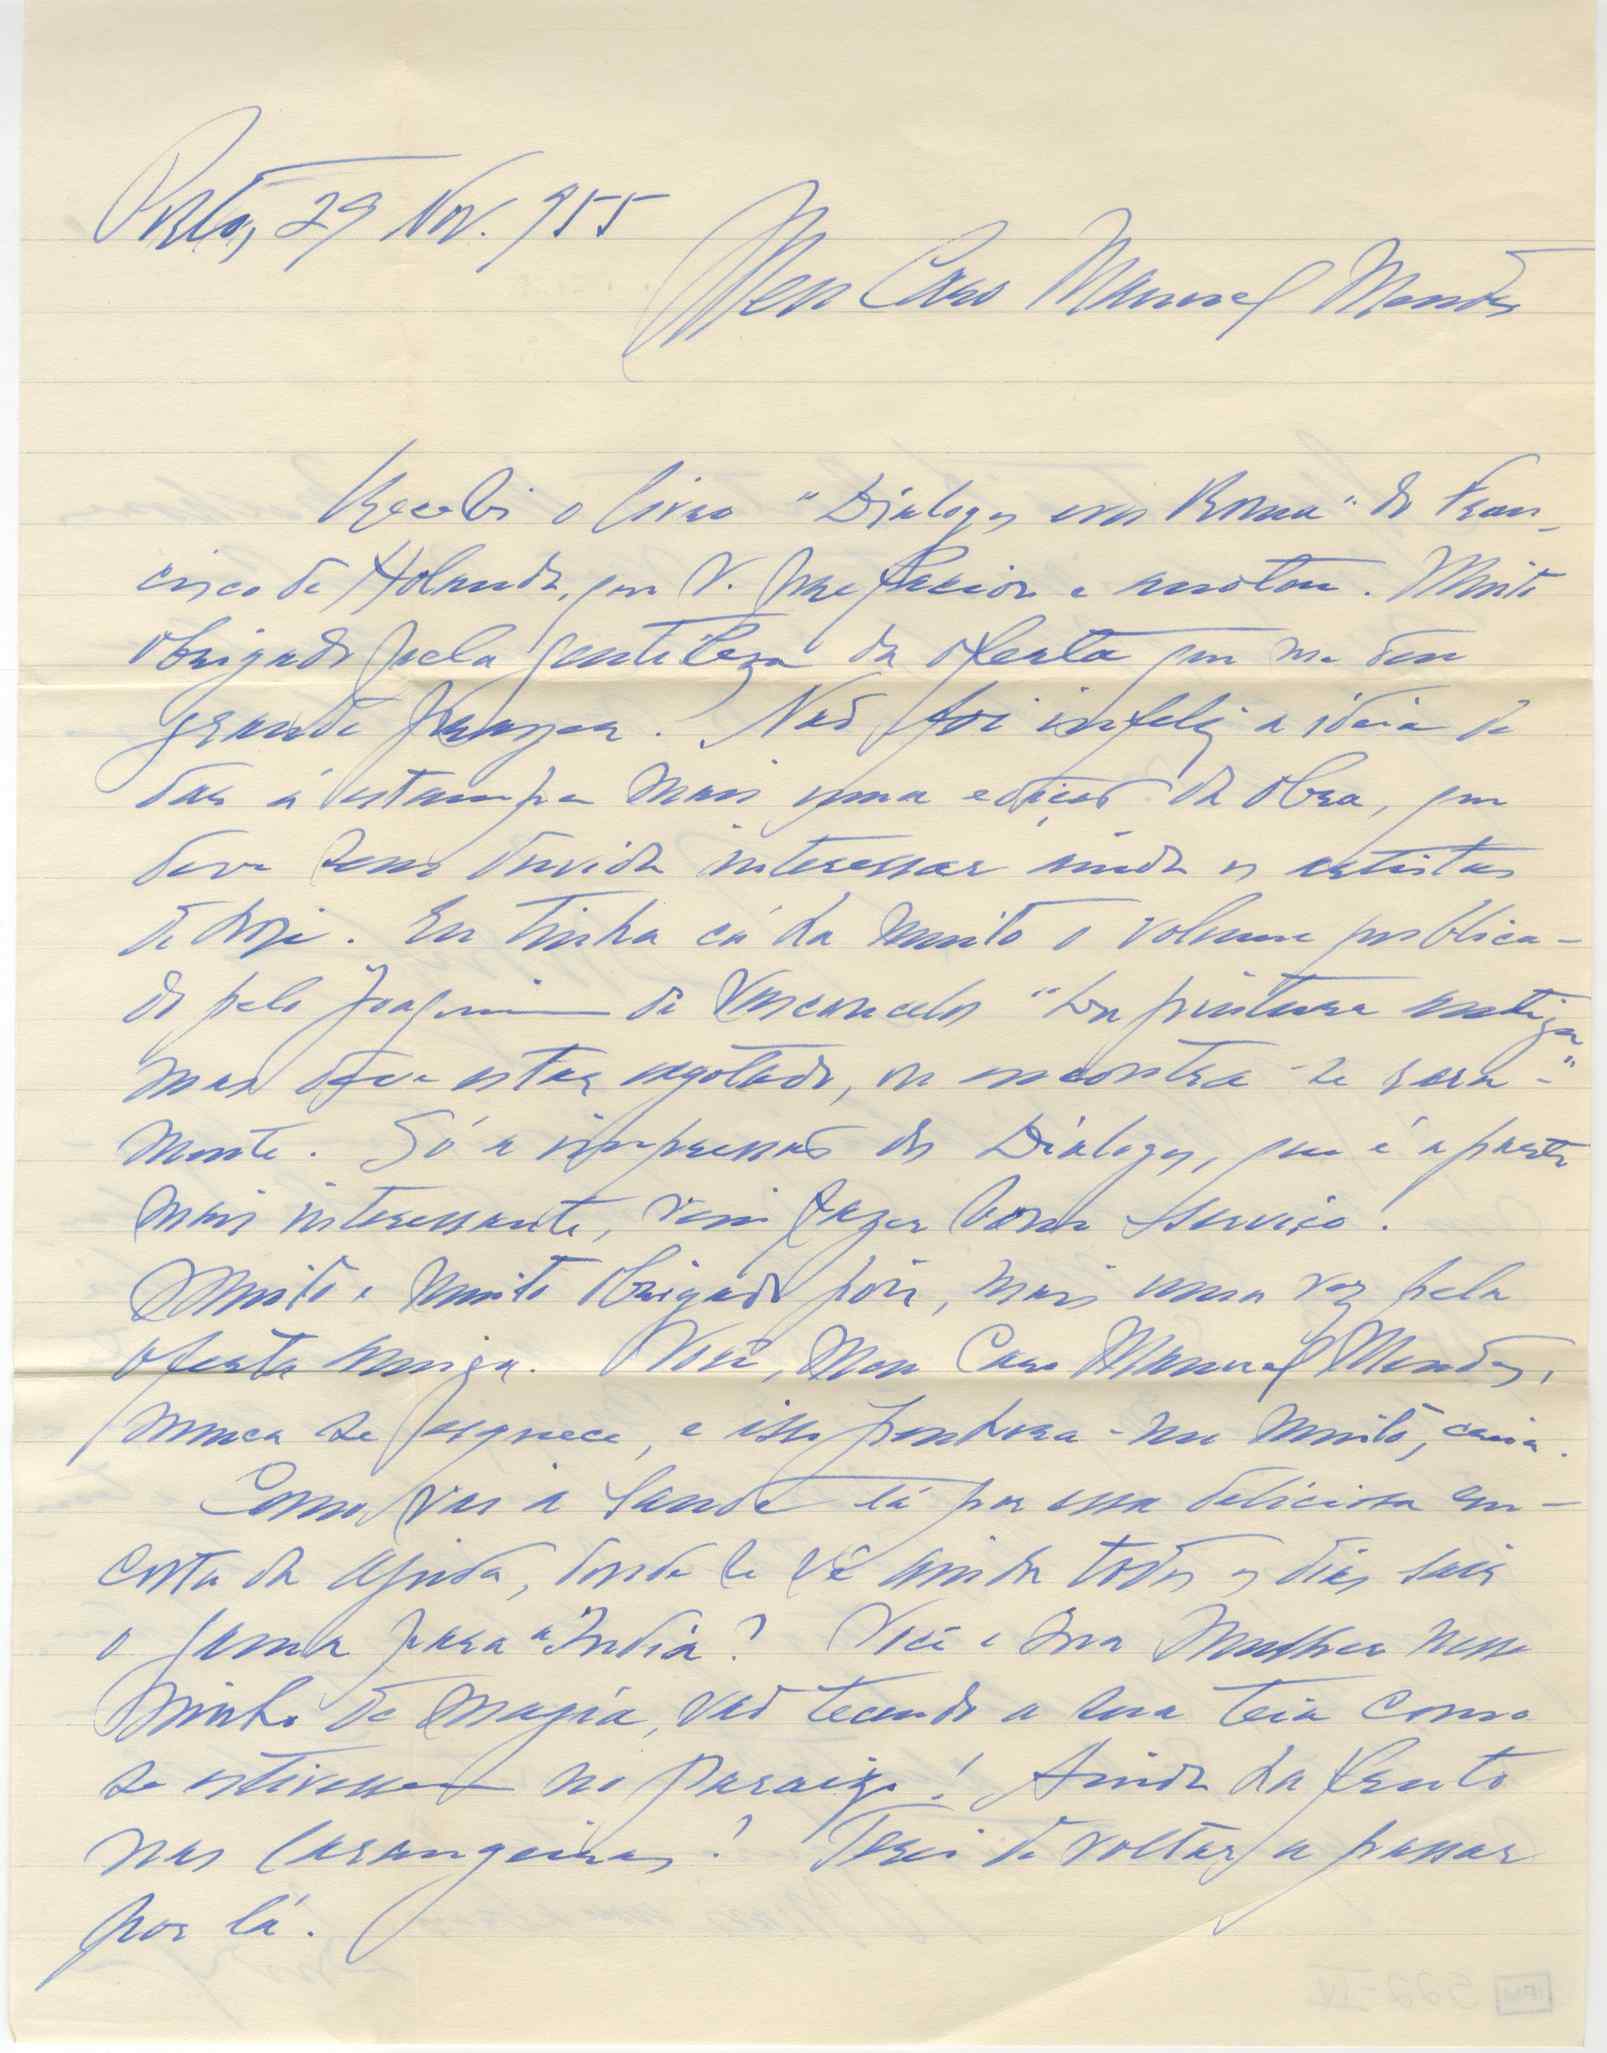 Porto, 29 Nov. 955
Meu Caro Manuel Mendes
Recebi o livro "Dialogos em Roma" de Fran-
cisco de Holanda, que V. prefaciou e anotou. Muito
obrigado pela gentileza da oferta que me deu
grande prazer. Não foi infeliz a ideia de
dar á estampa mais uma edição da obra, que
deve sem duvida interessar ainda os artistas
de hoje. Eu tinha cá ha muito o volume publica-
do pelo Joaquim de Vasconcelos "Da pintura antiga"
mas deve estar esgotado, ou encontra-se rara-
mente. Só a impressão dos Diálogos, que é a parte
mais interessante, vem fazer bom serviço.
Muito e muito obrigado pois, mais uma vez pela
oferta amiga. Você, Meu Caro Manuel Mendes,
nunca se esquece, e isso penhora-me muito,
Como vai a saude lá por essa deliciosa en-
costa da Ajuda, donde se vê ainda todos os dias sair
o Gama para a India? Você e Sua Mulher nesse
ninho de magia, vão tecendo a sua teia como
se estivessem no paraizo! Ainda ha fruto
nas larangeiras? Terei de voltar a passar
por lá.